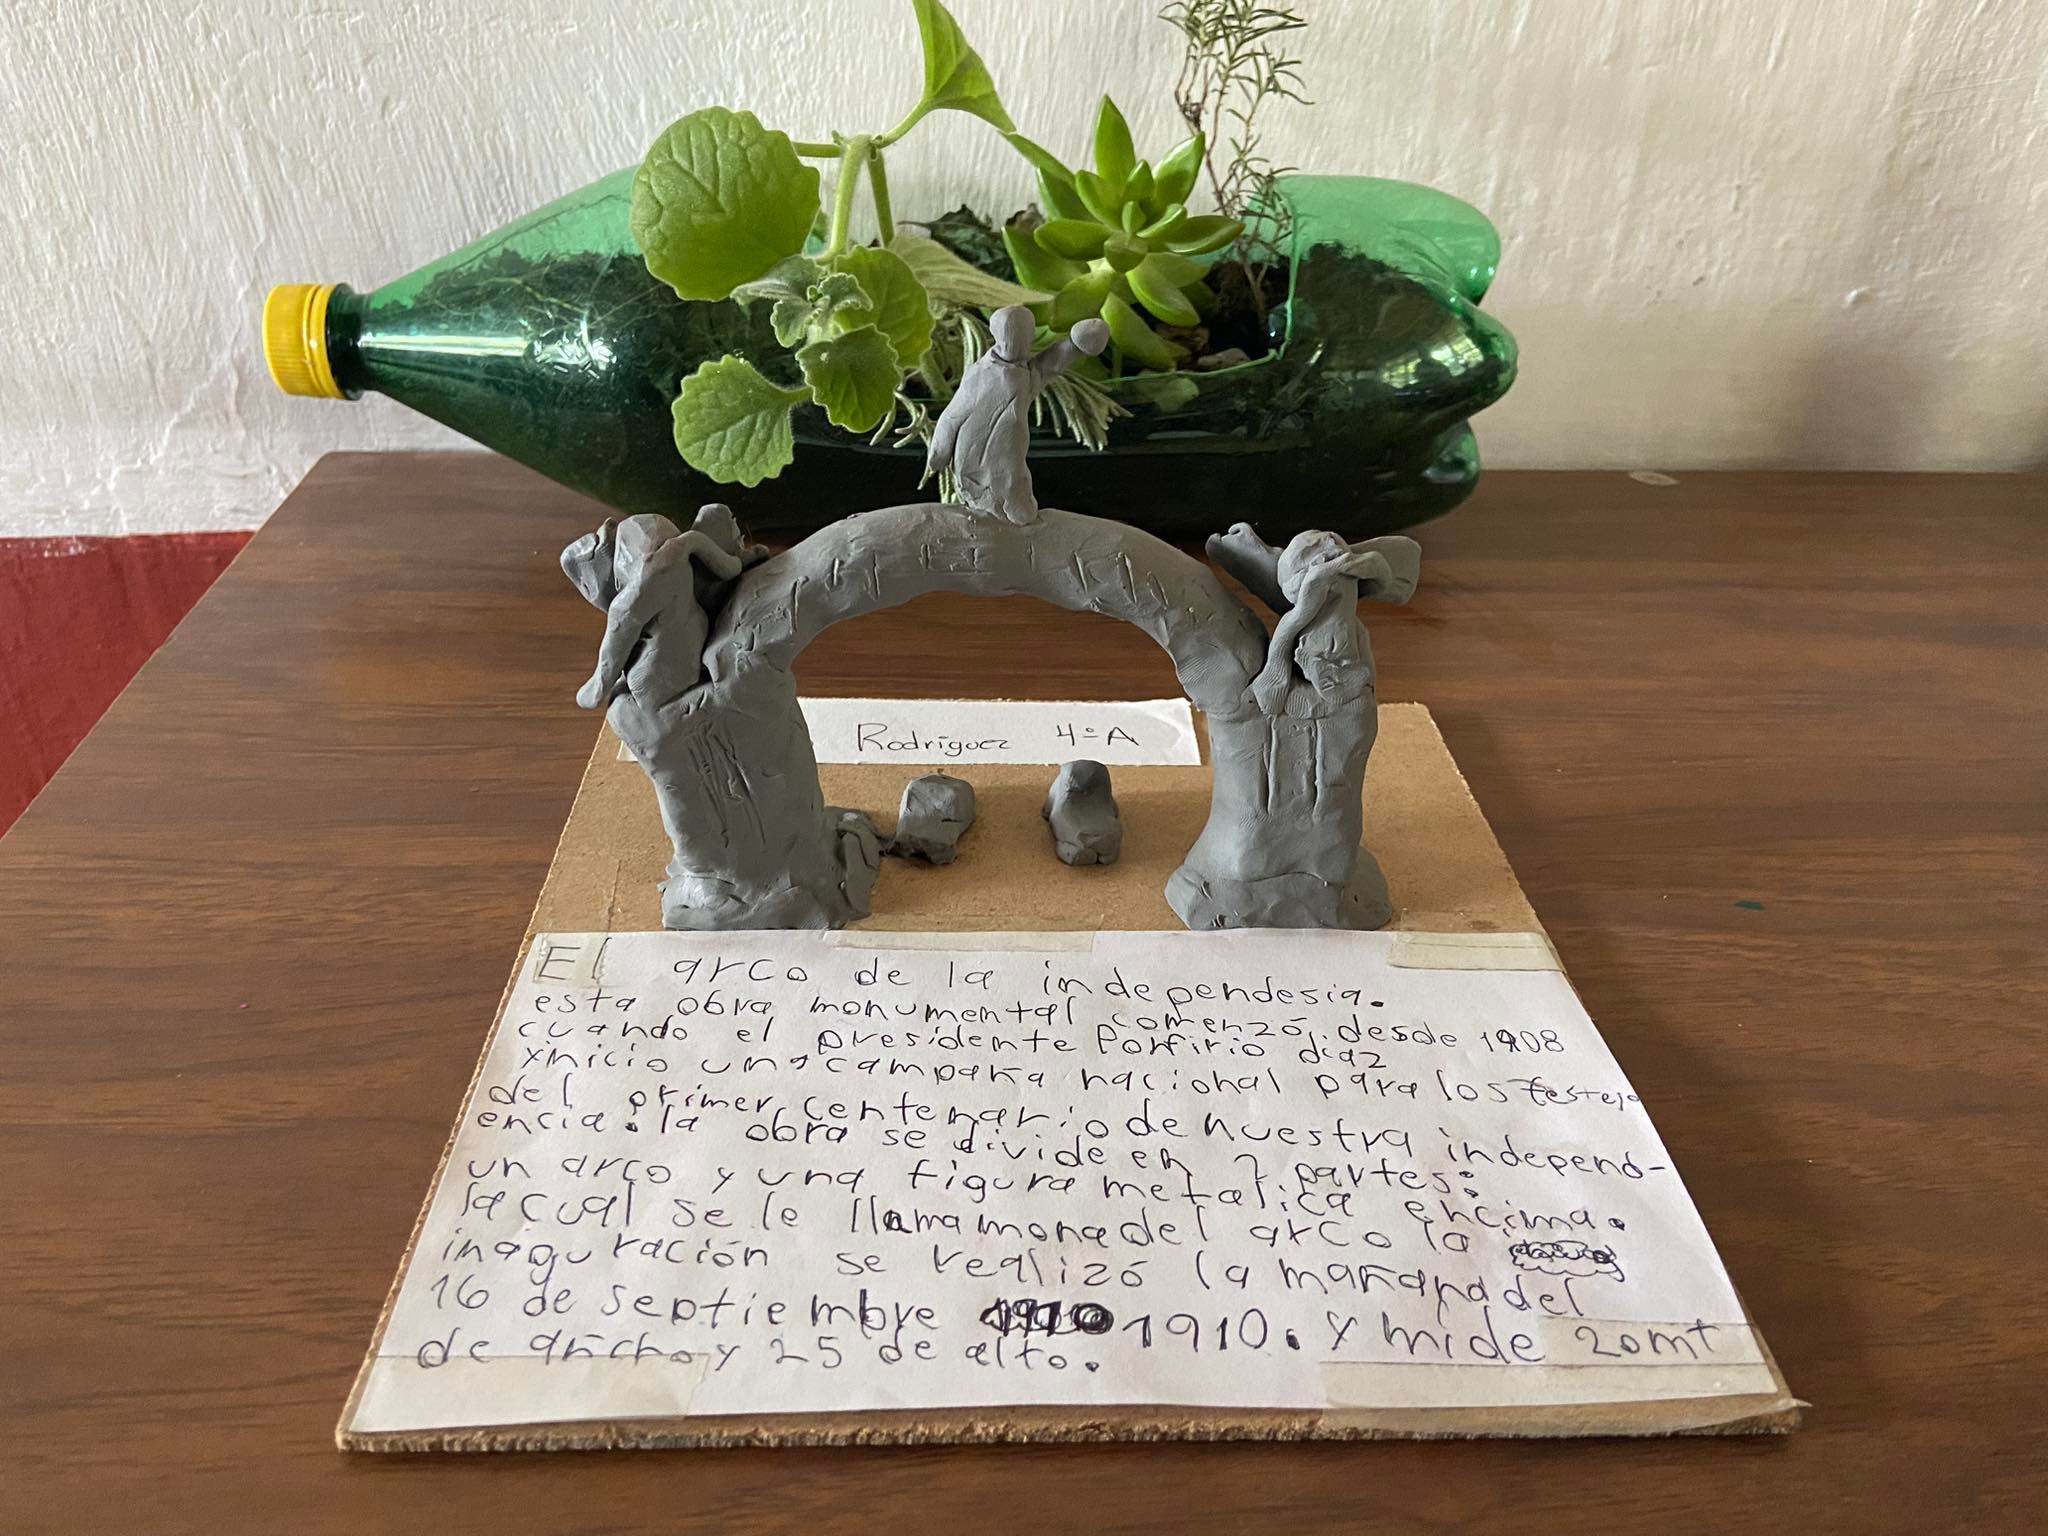 Rodríguez 4ºA
El arco de la independesia.
esta obra monumental comenzó, desde 1908
cuando el presidente Porfirio díaz
yinicio una campaña nacional para los festejo
del primer centenario de nuestra independ-
encia. la obra se divide en 2 partes:
un arco y una figura metalica encima.
la cual se le llama mona del arco la
inaguración se realizó la mañana del
16 de septiembre 1910. y mide 20mt
de ancho y 25 de alto.